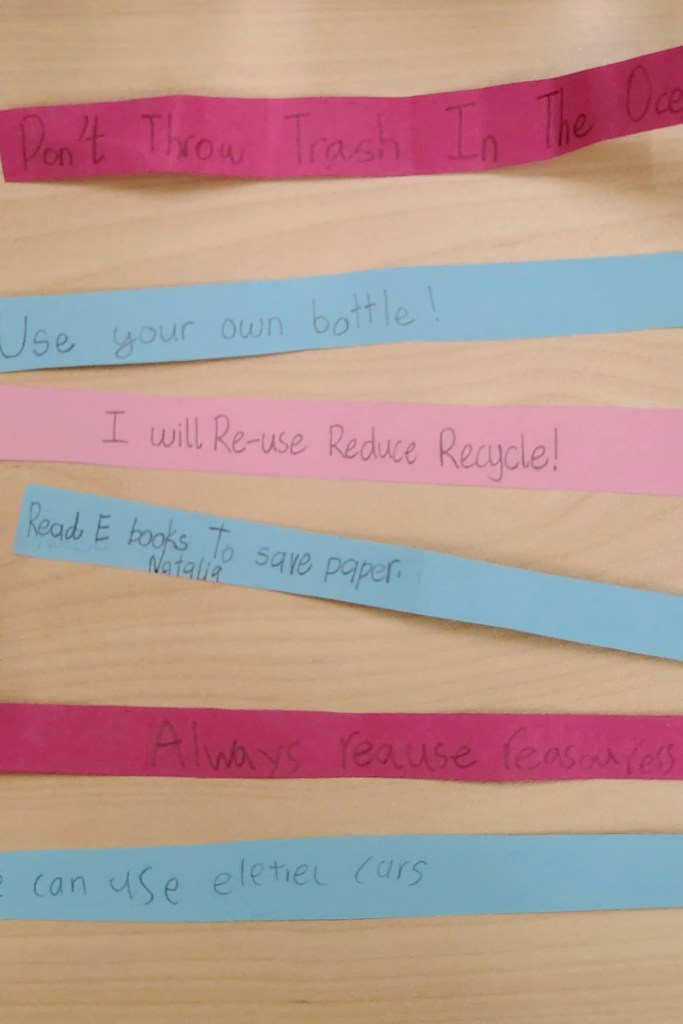 Don't Throw Trash In The Oce
Use your own bottle!
I will Re-use Reduce Recycle!
Read E books To save paper.
Natalia
Always reause reasouress
e can use eletric cars